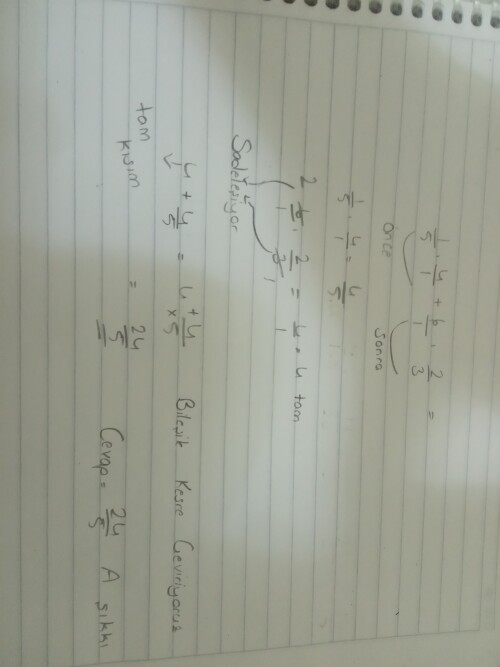 1/5 · 4/1 + 6/1 · 2/3 =
önce sonra
1/5 · 4/1 = 4/5
2 6/1 · 2/3 1 = 4/1 = 4 tam
Sadeleşiyor
4 + 4/5 = 4 + 4/5 × Bileşik Kesre Çeviriyoruz
tam kısım = 24/5 Cevap = 24/5 A şıkkı